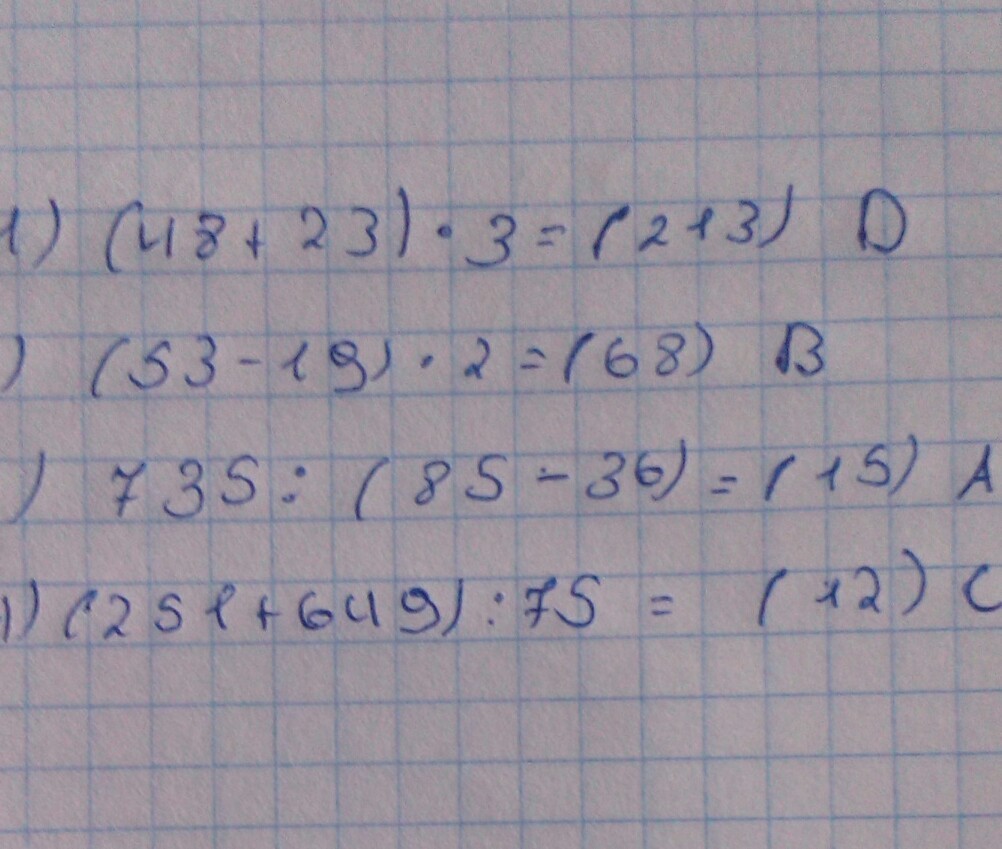 1) (48 + 23) · 3 = (213) D
) (53 - 19) · 2 = (68) B
) 735 : (85 - 36) = (15) A
) (251 + 649) : 75 = (12) C